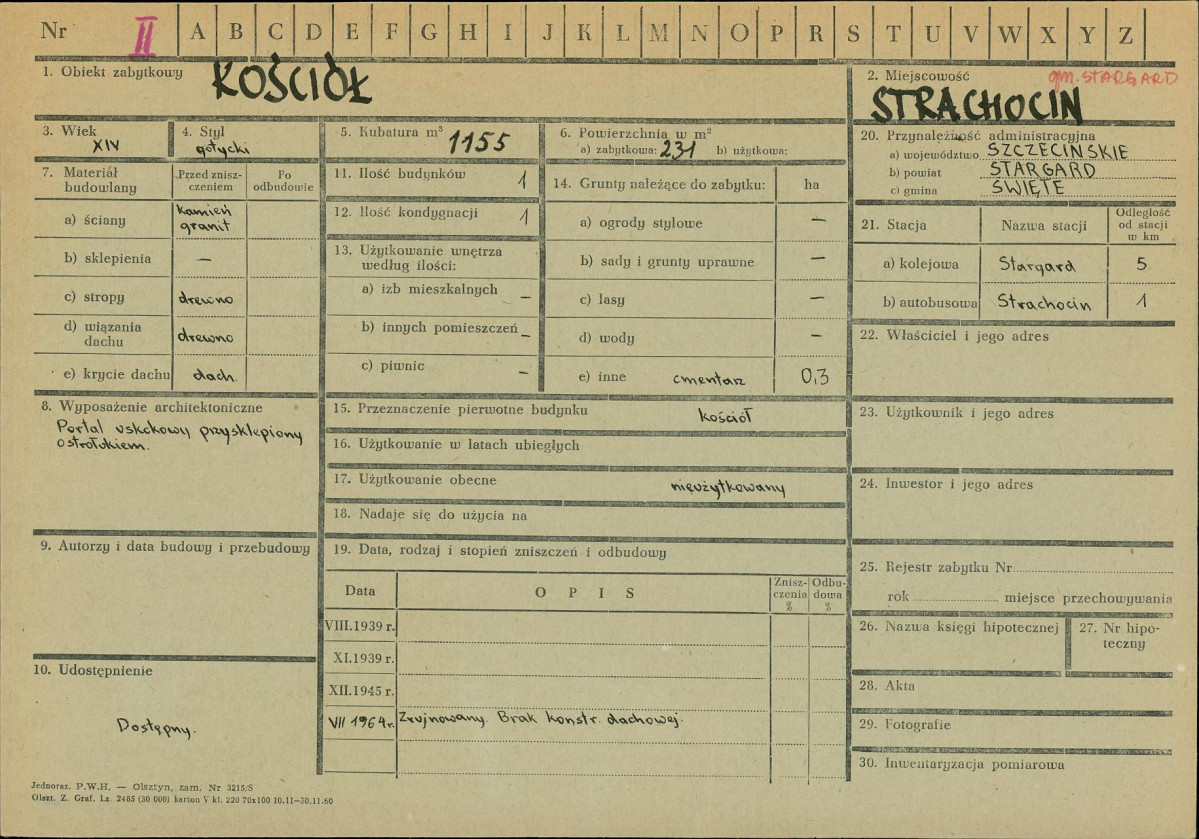 Nr II A B C D E F G H I J K L M N O P R S T U V W X Y Z
1. Obiekt zabytkowy KOŚCIÓŁ
2. Miejscowość gm. STARGARD
STRACHOCIN
3. Wiek
XIV
4. Styl
gotycki
5. Kubatura m³ 1155
6. Powierzchnia w m²
a) zabytkowa: 231 b) użytkowa:
7. Materiał budowlany
Przed zniszczeniem
Po odbudowie
a) ściany kamień granit
b) sklepienia —
c) stropy drewno
d) wiązania dachu drewno
e) krycie dachu dach.
11. Ilość budynków 1
12. Ilość kondygnacji 1
13. Użytkowanie wnętrza
według ilości:
a) izb mieszkalnych —
b) innych pomieszczeń —
c) piwnic —
14. Grunty należące do zabytku: ha
a) ogrody stylowe —
b) sady i grunty uprawne —
c) lasy —
d) wody —
e) inne cmentarz 0,3
20. Przynależność administracyjna
a) województwo SZCZECIŃSKIE
b) powiat STARGARD
c) gmina ŚWIĘTE
21. Stacja Nazwa stacji Odległość od stacji w km
a) kolejowa Stargard 5
b) autobusowa Strachocin 1
22. Właściciel i jego adres
23. Użytkownik i jego adres
24. Inwestor i jego adres
25. Rejestr zabytku Nr
rok miejsce przechowywania
26. Nazwa księgi hipotecznej
27. Nr hipoteczny
28. Akta
29. Fotografie
30. Inwentaryzacja pomiarowa
8. Wyposażenie architektoniczne
Portal uskokowy przysklepiony
ostrołukiem.
9. Autorzy i data budowy i przebudowy
10. Udostępnienie
Dostępny.
15. Przeznaczenie pierwotne budynku kościół
16. Użytkowanie w latach ubiegłych
17. Użytkowanie obecne nieużytkowany
18. Nadaje się do użycia na
19. Data, rodzaj i stopień zniszczeń i odbudowy
Data OPIS Zniszczenia % Odbudowa %
VIII.1939 r.
XI.1939 r.
XII.1945 r.
VII 1964 r. Zrujnowany. Brak konstr. dachowej.
Jednoraz. P.W.H. — Olsztyn, zam. Nr 3215/S
Olszt. Z. Graf. Lz. 2485 (30 000) karton V kl. 220 70x100 10.11—30.11.60